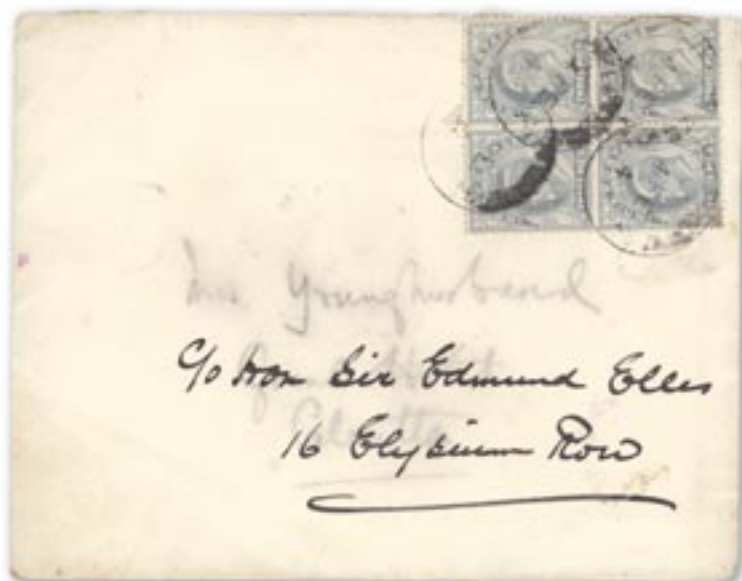 Mrs Younghusband
c/o Hon Sir Edmund Elles
Calcutta
16 Elysium Row